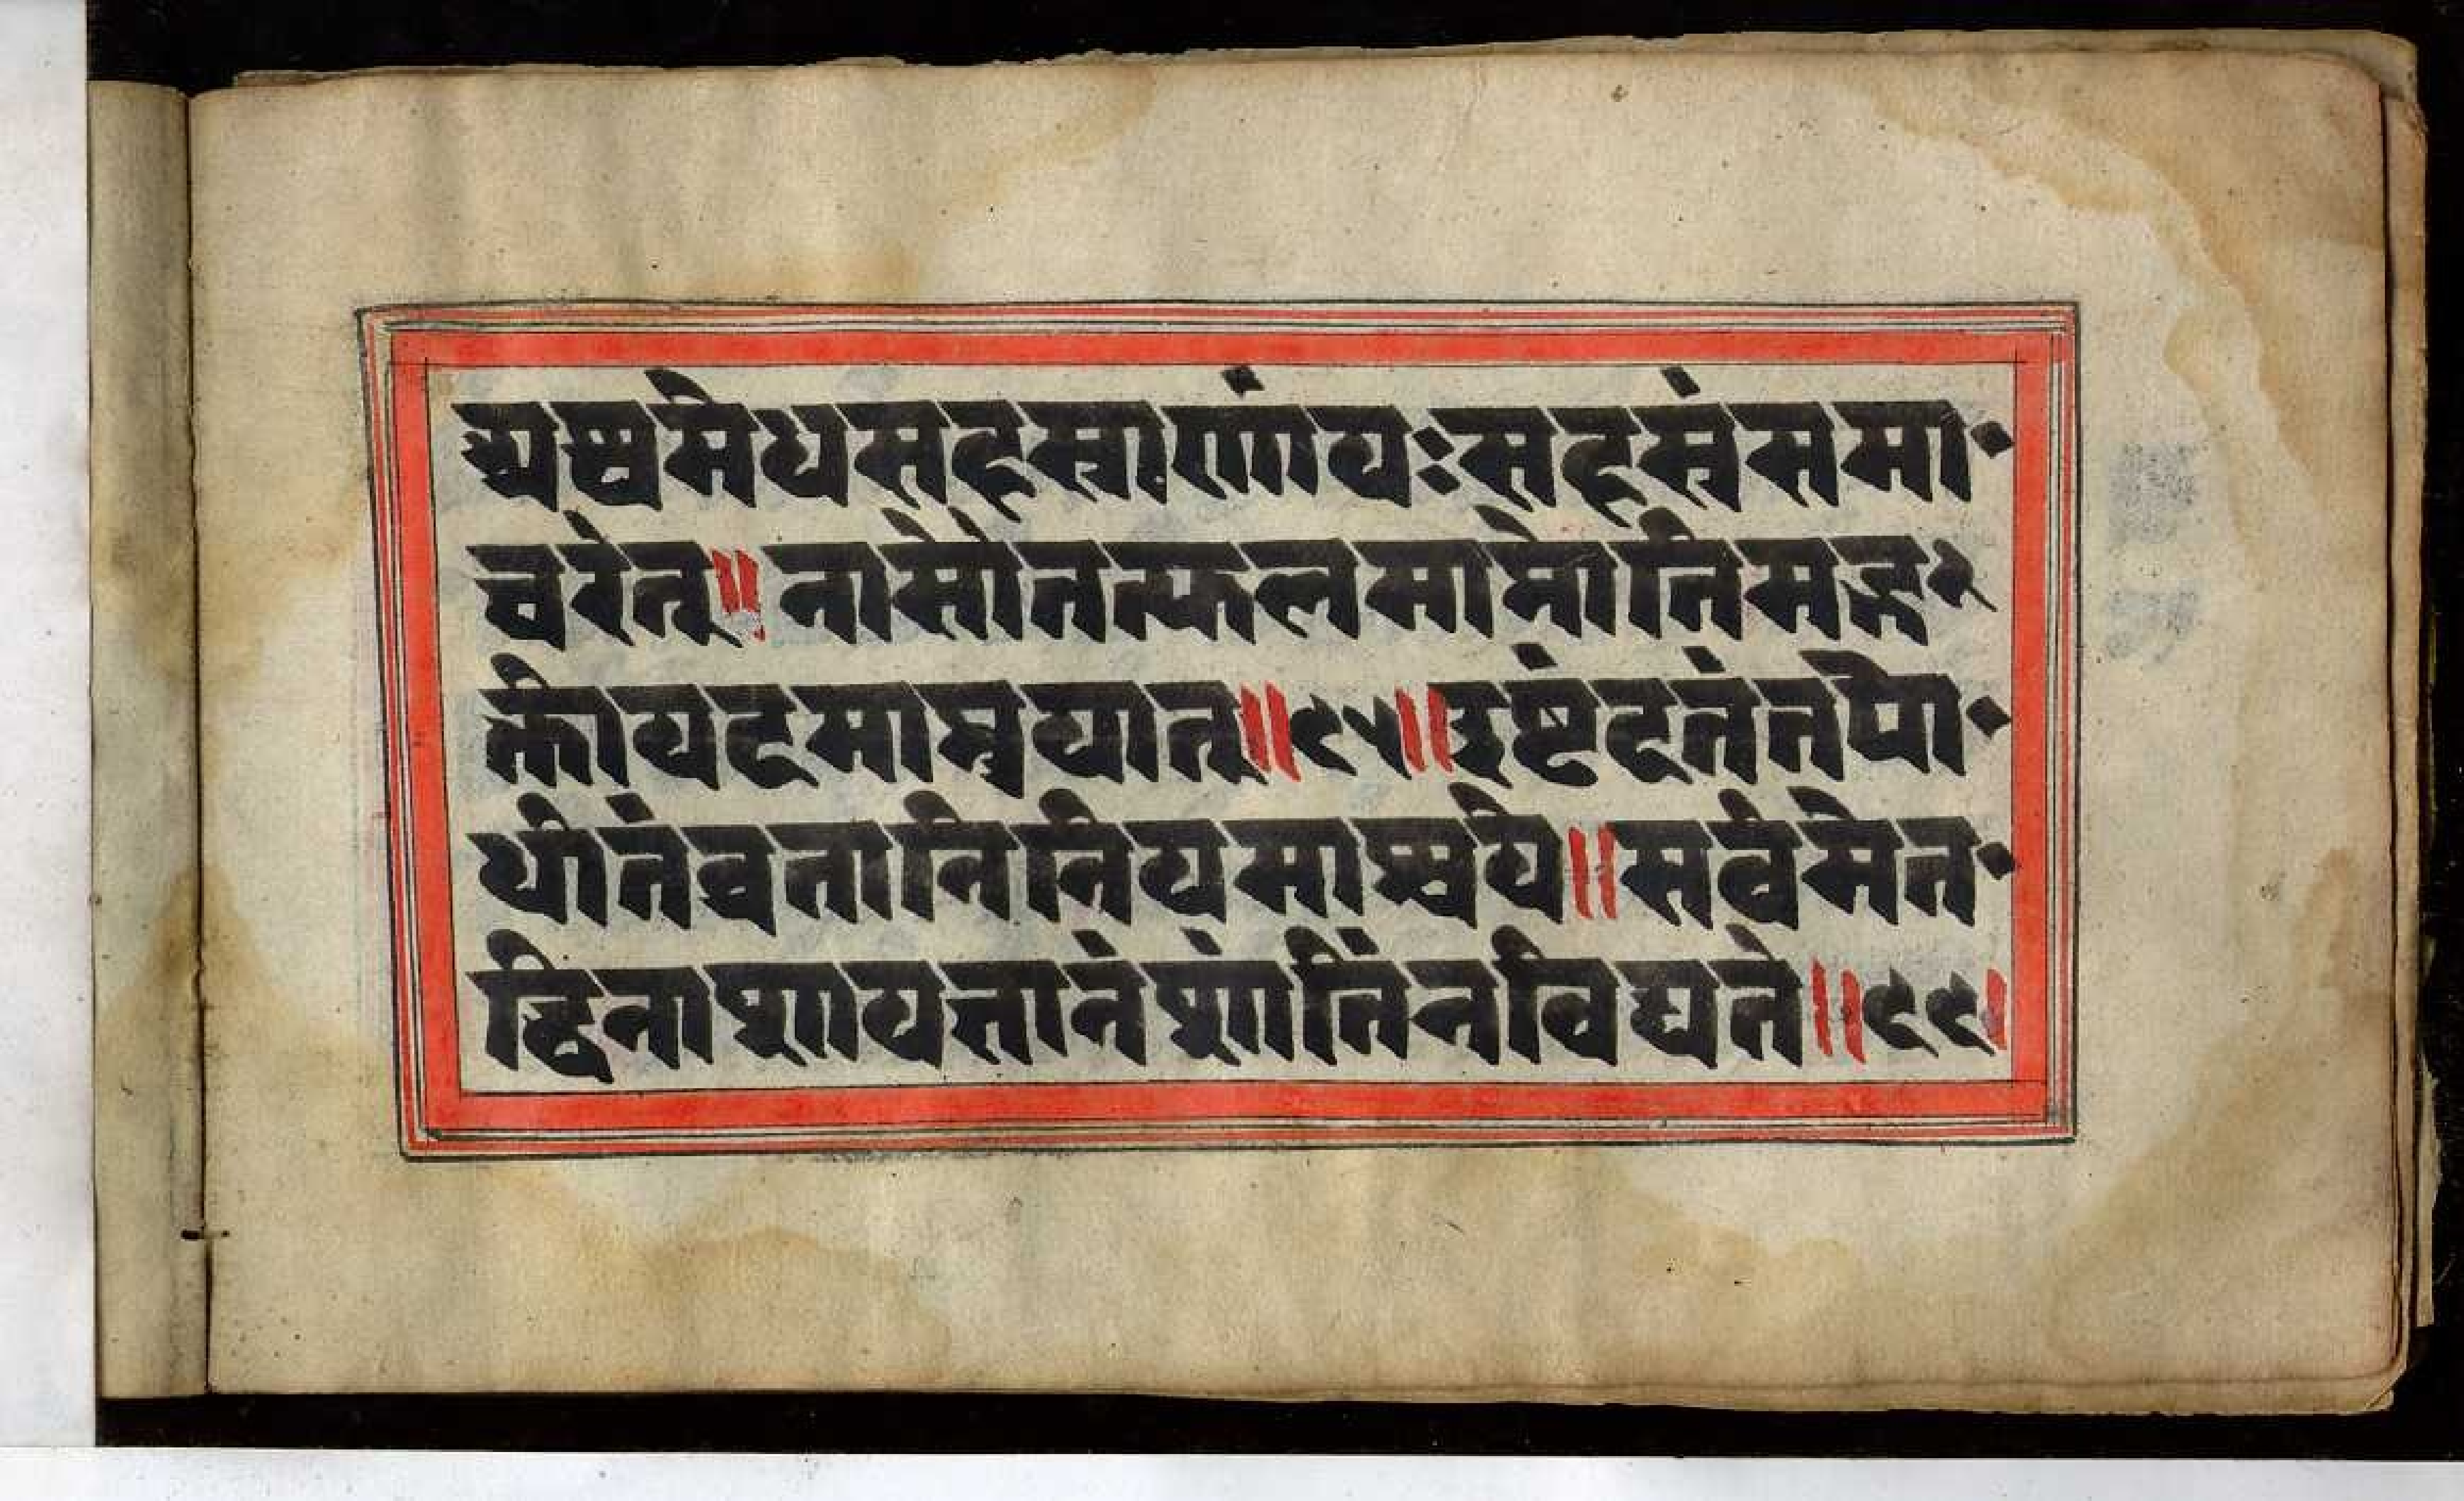 अश्वमेधसहस्राणांयःसहस्रंसमा॰
चरेत्॥नासौतत्फलमाप्नोतिमद्भ॰
क्तैर्यदवाप्नुयात्॥९५॥इष्टंदत्तंतपो॰
धीतंव्रतानिनियमाश्चये॥सर्वमेत॰
द्विनाशायत्तानंशांतिंनविद्यते॥९९।